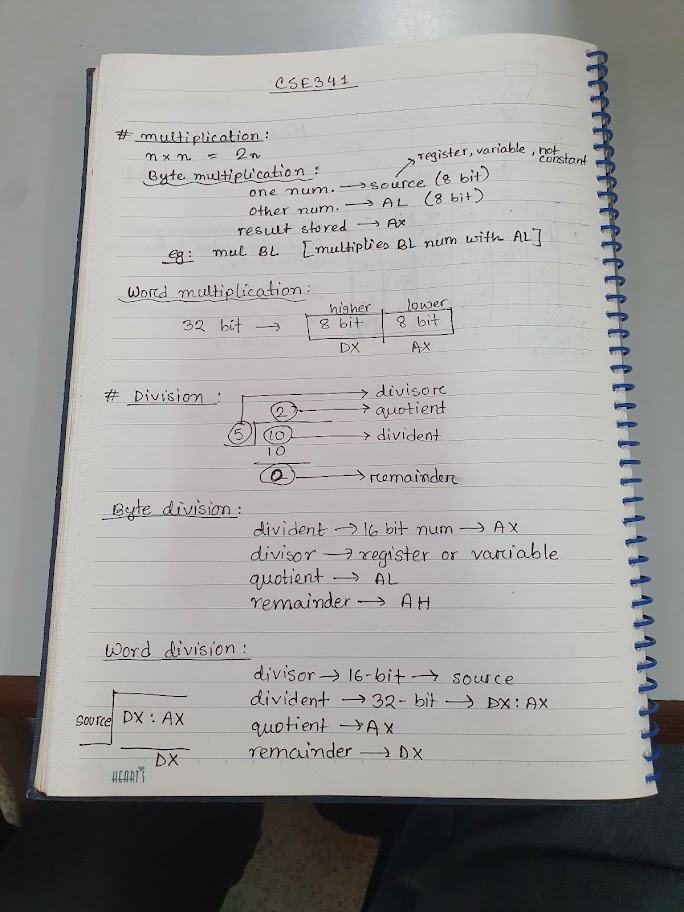 CSE341
# multiplication:
n x n = 2n
register, variable, not constant
Byte multiplication:
one num. → source (8 bit)
other num. → AL (8 bit)
result stored → AX
eg: mul BL [multiplies BL num with AL]
Word multiplication:
higher lower
32 bit → 8 bit 8 bit
DX AX
# Division:
→ divisor
2 → quotient
5 10 → divident
10
0 → remainder
Byte division:
divident → 16 bit num → AX
divisor → register or variable
quotient → AL
remainder → AH
Word division:
divisor → 16-bit → source
divident → 32-bit → DX:AX
source DX : AX
quotient → AX
remainder → DX
DX
HEART'S